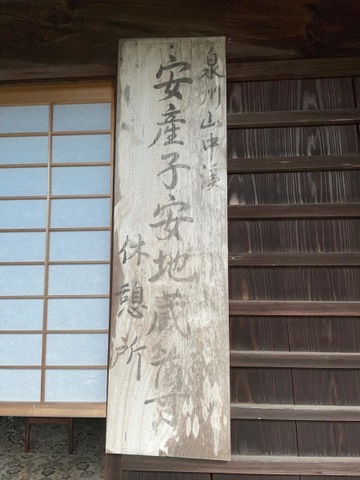 泉州山中溪
安産子安地蔵尊
休憩所